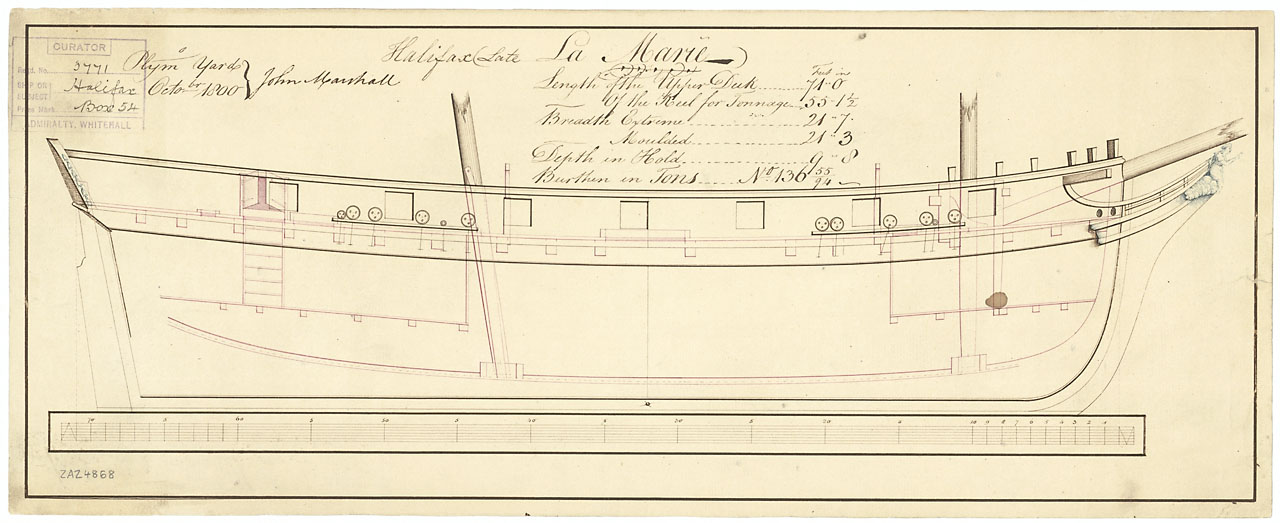 CURATOR
Regd. No. 3771
SHIP OR SUBJECT Halifax
Box 54
ADMIRALTY, WHITEHALL
Plymo Yard
Octobr 1800
John Marshall
Halifax (Late La Marie)
Feet in
Length of the Upper Deck 71 - 0
of the Keel for Tonnage 55 - 1½
Breadth Extreme 21 - 7
Moulded 21 - 3
Depth in Hold 9 - 8
Burthen in Tons No 136 55/94
70 60 50 40 30 20 10 9 8 7 6 5 4 3 2 1
ZAZ4868